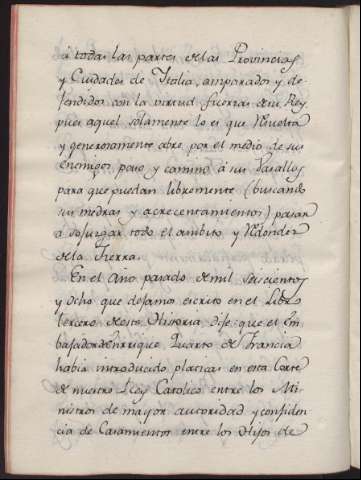 à todas las partes de las Provincias
y Ciudades de Italia, amparados y de
fendidos con la virtud fuerzas de su Rey
pues aquel solamente lo es que
y generosamente abre por el medio de sus
enemigos paso y camino à sus Vasallos
para que puedan libremente (buscando
sus medras y acrecentamientos) pasar
a sojuzgar todo el ambito y Redondez
de la Tierra.
En el Año pasado de mil seiscientos
y ocho que dejamos escrito en el Libro
tercero de esta Historia dije que el Em
bajador de Henrique Quarto de Francia
habia introducido platicas en esta Corte
de nuestro Rey Catolico entre los Mi
nistros de mayor autoridad y confiden
cia de Casamientos entre los Hijos de